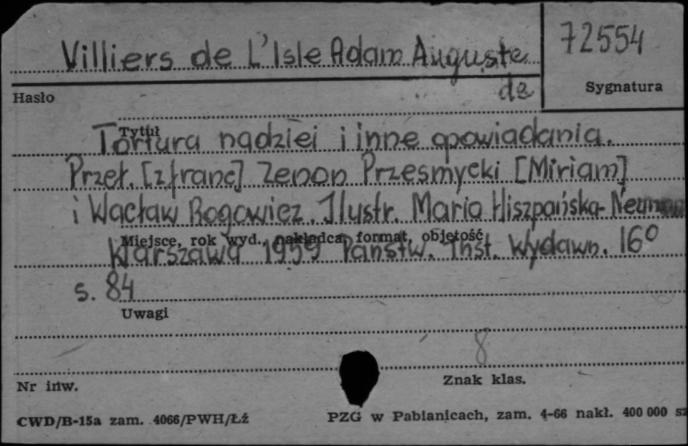 Villiers de L'Isle Adam Auguste 72554
de
Hasło Sygnatura
Tytuł
Tortura nadziei i inne opowiadania.
Przeł. [z franc] Zenon Przesmycki [Miriam]
i Wacław Rogowicz. Ilustr. Maria Hiszpańska-Neumann
Miejsce, rok wyd., nakładca, format, objętość
Warszawa 1959 Państw. Inst. Wydawn. 16°
s. 84
Uwagi
8
Nr inw. Znak klas.
CWD/B-15a zam. 4066/PWH/Łź PZG w Pabianicach, zam. 4-66 nakł. 400 000 sz